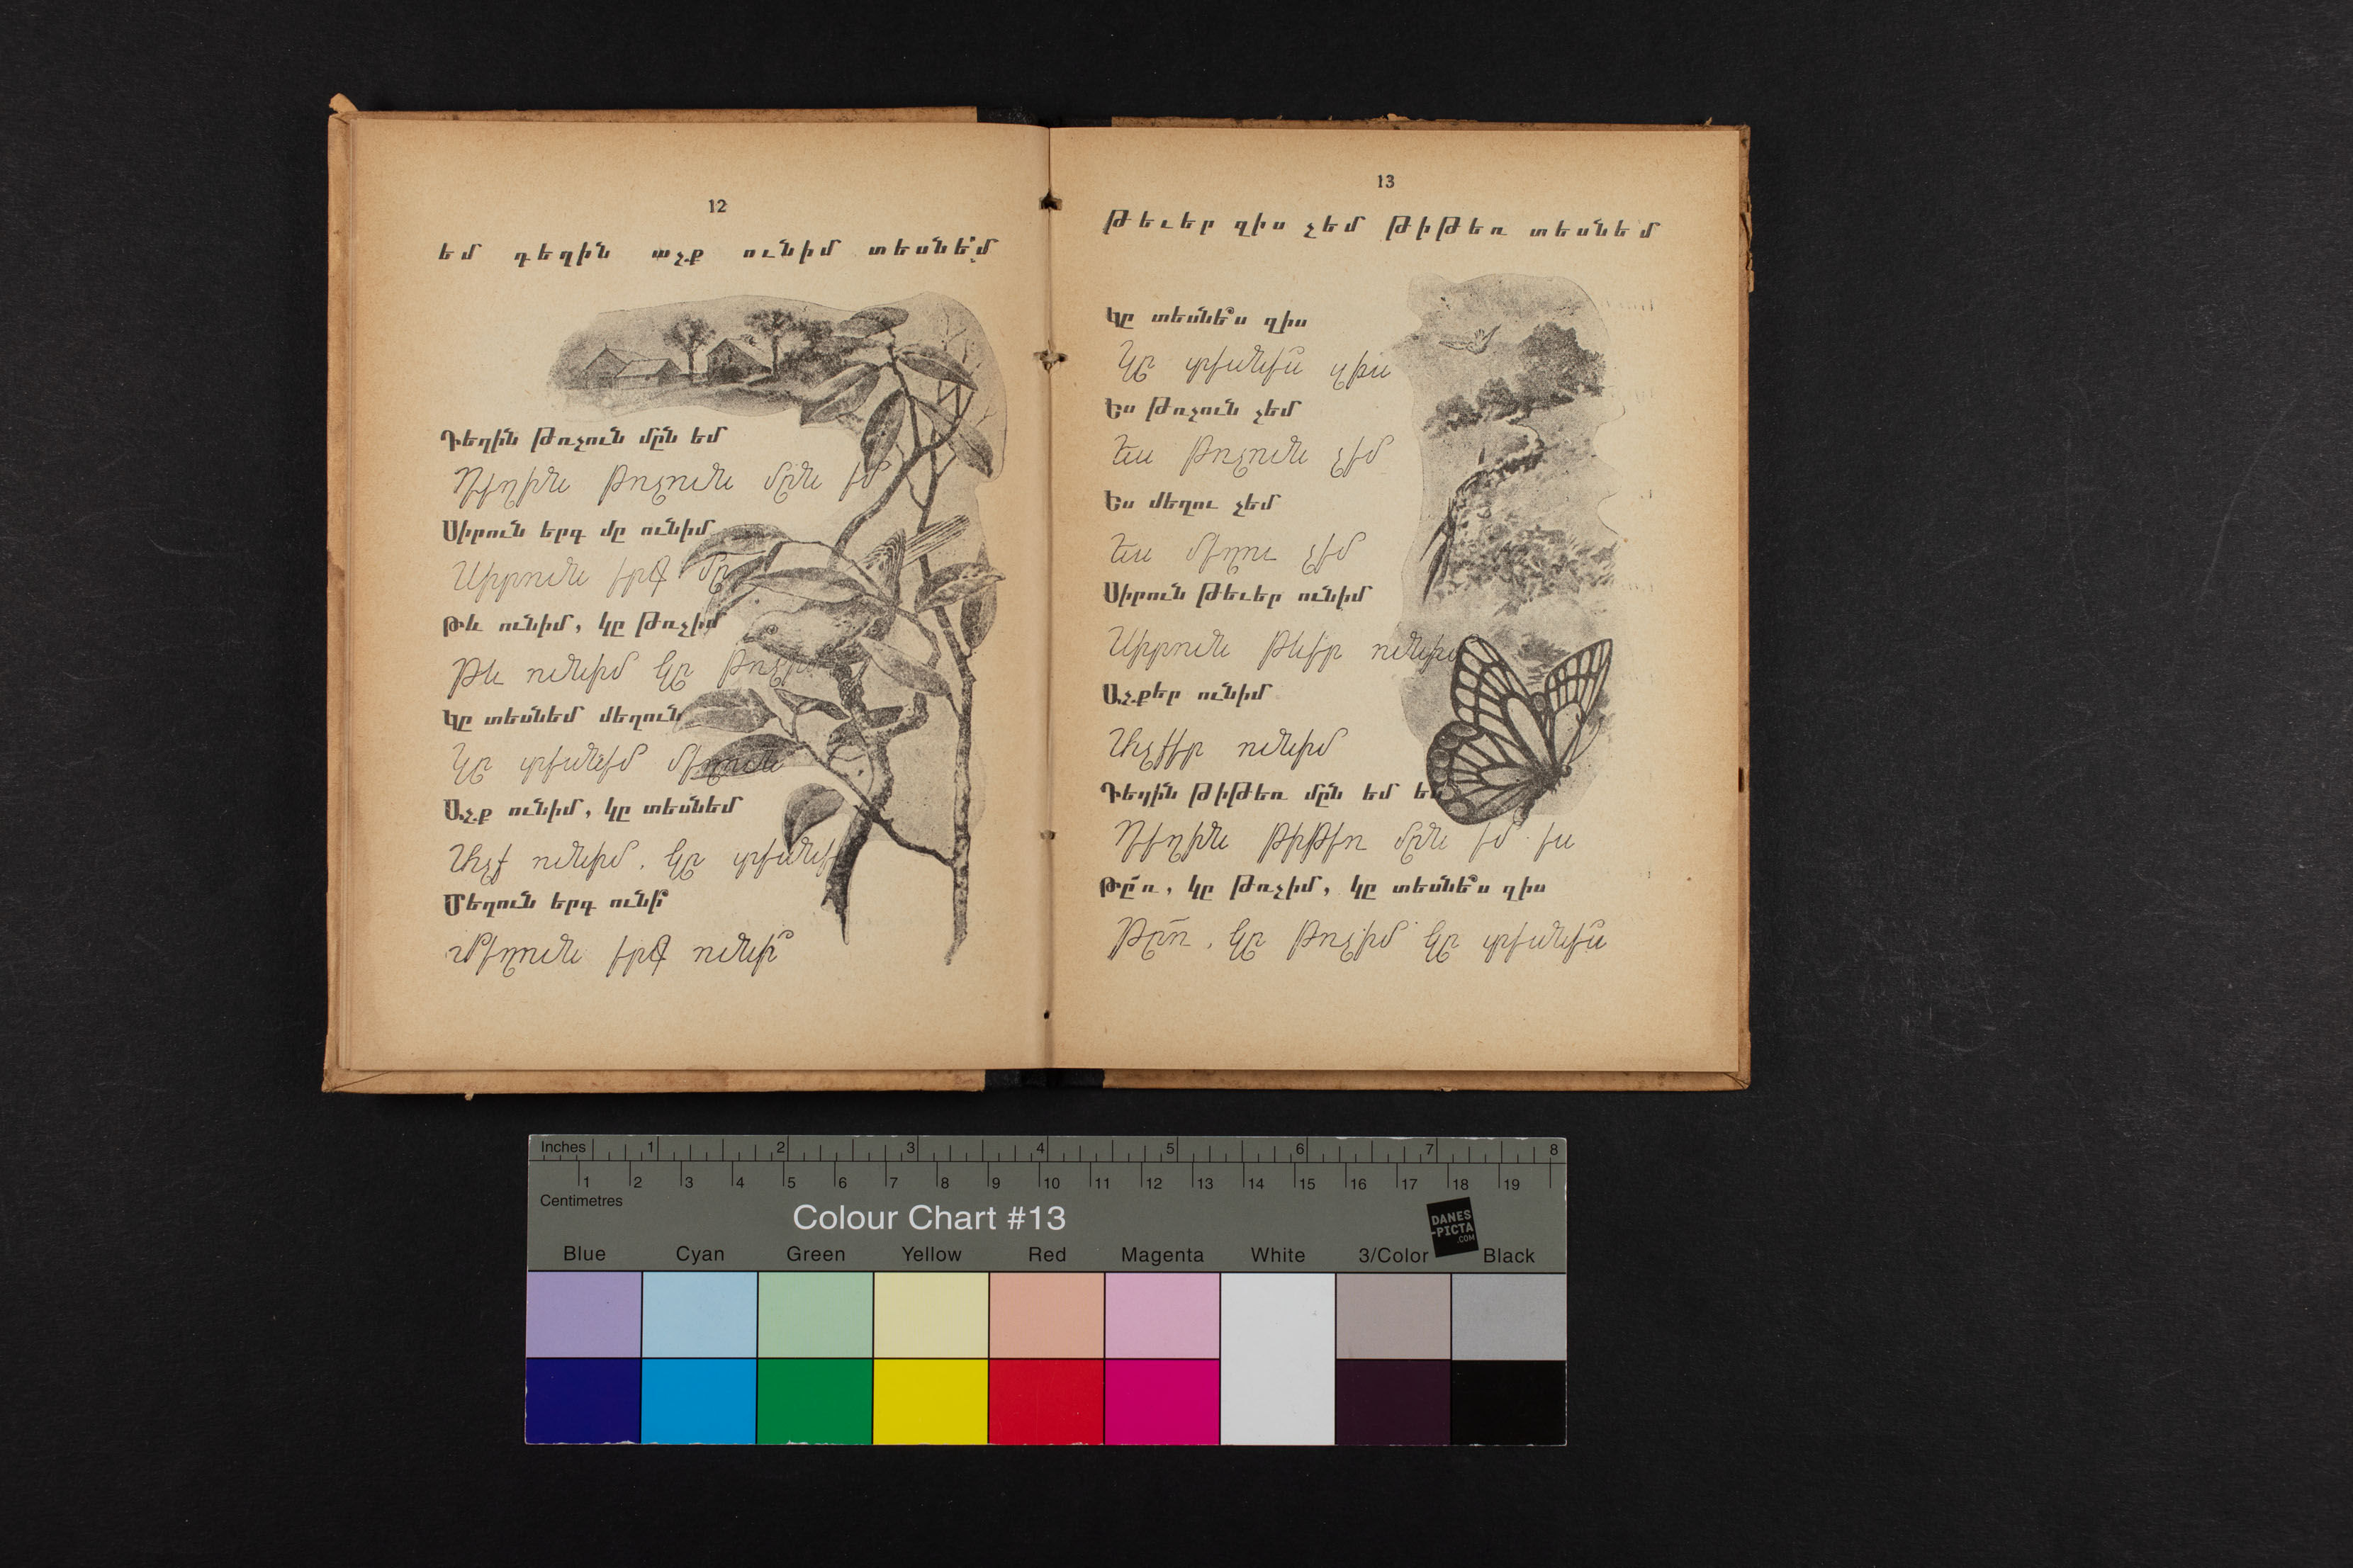 12
եմ դեղին աչք ունիմ տեսնե՞մ
Դեղին թռչուն մըն եմ
Դեղին թռչուն մըն եմ
Սիրուն երգ մը ունիմ
Սիրուն երգ մը
Թև ունիմ, կը թռչիմ
Թև ունիմ կը թռչիմ
Կը տեսնեմ մեղուն
Կը տեսնեմ մեղուն
Աչք ունիմ, կը տեսնեմ
Աչք ունիմ. կը տեսնեմ
Մեղուն երգ ունի՞
Մեղուն երգ ունի՞
13
Թեւեր զիս չեմ Թիթեռ տեսնեմ
Կը տեսնե՞ս զիս
Կը տեսնե՞ս զիս
Ես թռչուն չեմ
Ես թռչուն չեմ
Ես մեղու չեմ
Ես մեղու չեմ
Սիրուն թեւեր ունիմ
Սիրուն թևեր ունիմ
Աչքեր ունիմ
Աչքեր ունիմ
Դեղին թիթեռ մըն եմ ես
Դեղին թիթեռ մըն եմ ես
Թը՜ռ, կը թռչիմ, կը տեսնե՞ս զիս
Թը՜ռ, կը թռչիմ կը տեսնե՞ս
Inches 1 2 3 4 5 6 7 8
1 2 3 4 5 6 7 8 9 10 11 12 13 14 15 16 17 18 19
Centimetres
Colour Chart #13
DANES
-PICTA
.COM
Blue Cyan Green Yellow Red Magenta White 3/Color Black